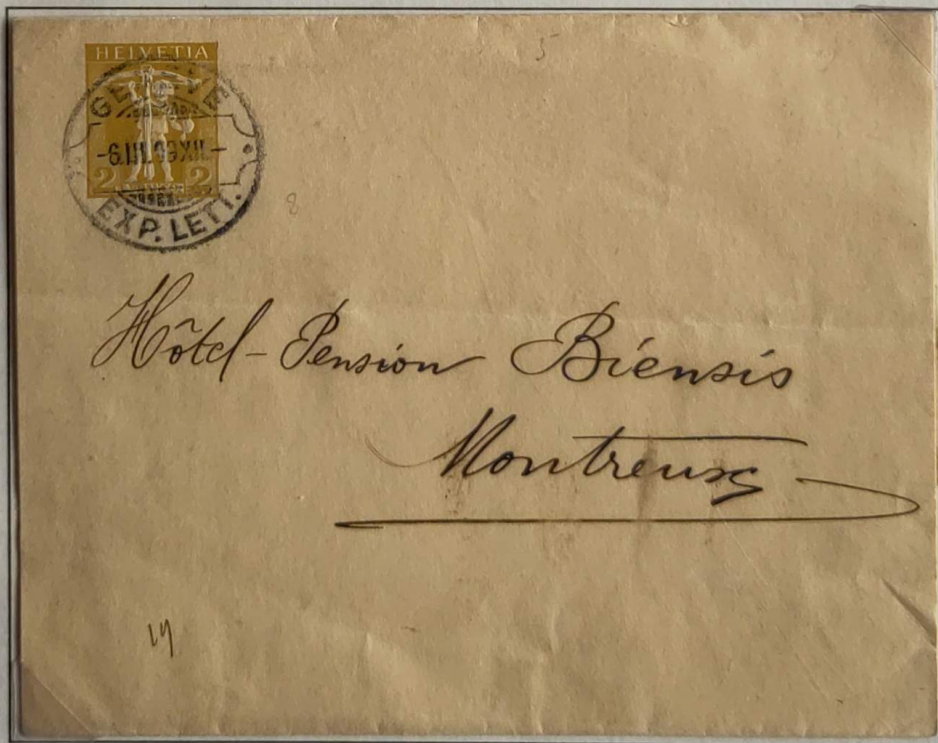 5
HELVETIA
GENÈVE
-6.III.09 XII-
2 2
EXP. LETT.
8
Hôtel-Pension Biensis
Montreux
19